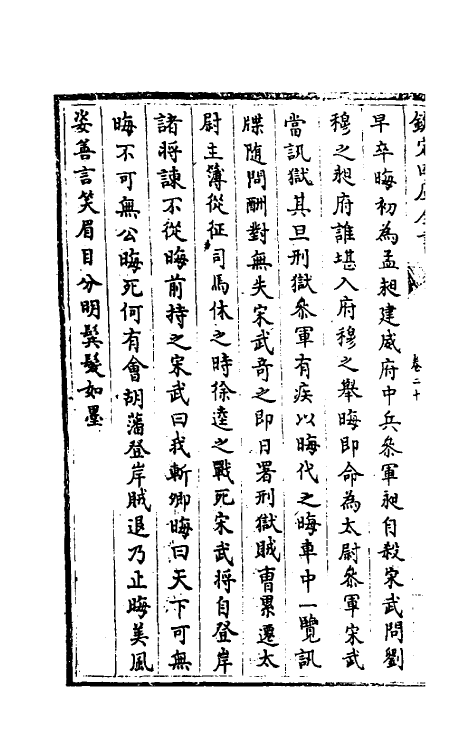 欽定四庫全書
卷二十
早卒晦初為孟昶建威府中兵參軍昶自殺宋武問劉
穆之昶府誰堪入府穆之舉晦即命為太尉參軍宋武
當訊獄其旦刑獄參軍有疾以晦代之晦車中一覽訊
牒随問酬對無失宋武奇之即日署刑獄賊曹累遷太
尉主簿從征司馬休之時徐逵之戰死宋武将自登岸
諸将諫不從晦前持之宋武曰我斬卿晦曰天下可無
晦不可無公晦死何有會胡藩登岸賊退乃止晦美風
姿善言笑眉目分明鬓髮如墨